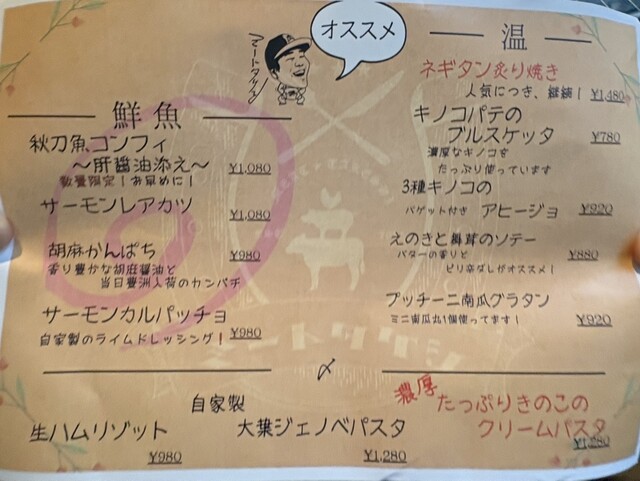 オススメ
ミートタケシ
鮮魚
秋刀魚コンフィ
〜肝醤油添え〜
¥1,080
数量限定!お早めに!
サーモンレアカツ
¥1,080
胡麻かんぱち
¥980
香り豊かな胡麻醤油と
当日豊洲入荷のカンパチ
サーモンカルパッチョ
¥980
自家製のライムドレッシング!
温
ネギタン炙り焼き
人気につき、継続!
¥1,480
キノコパテの
ブルスケッタ
¥780
濃厚なキノコを
たっぷり使っています
3種キノコの
バゲット付き アヒージョ
¥920
えのきと舞茸のソテー
バターの香りと
ピリ辛ダレがオススメ!
¥880
プッチーニ南瓜グラタン
ミニ南瓜丸1個使ってます!
¥920
〆
自家製
生ハムリゾット
¥980
大葉ジェノベパスタ
¥1,280
濃厚
たっぷりきのこの
クリームパスタ
¥1,280